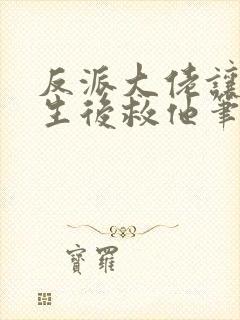 反派大佬讓
生後救他筆
寶羅